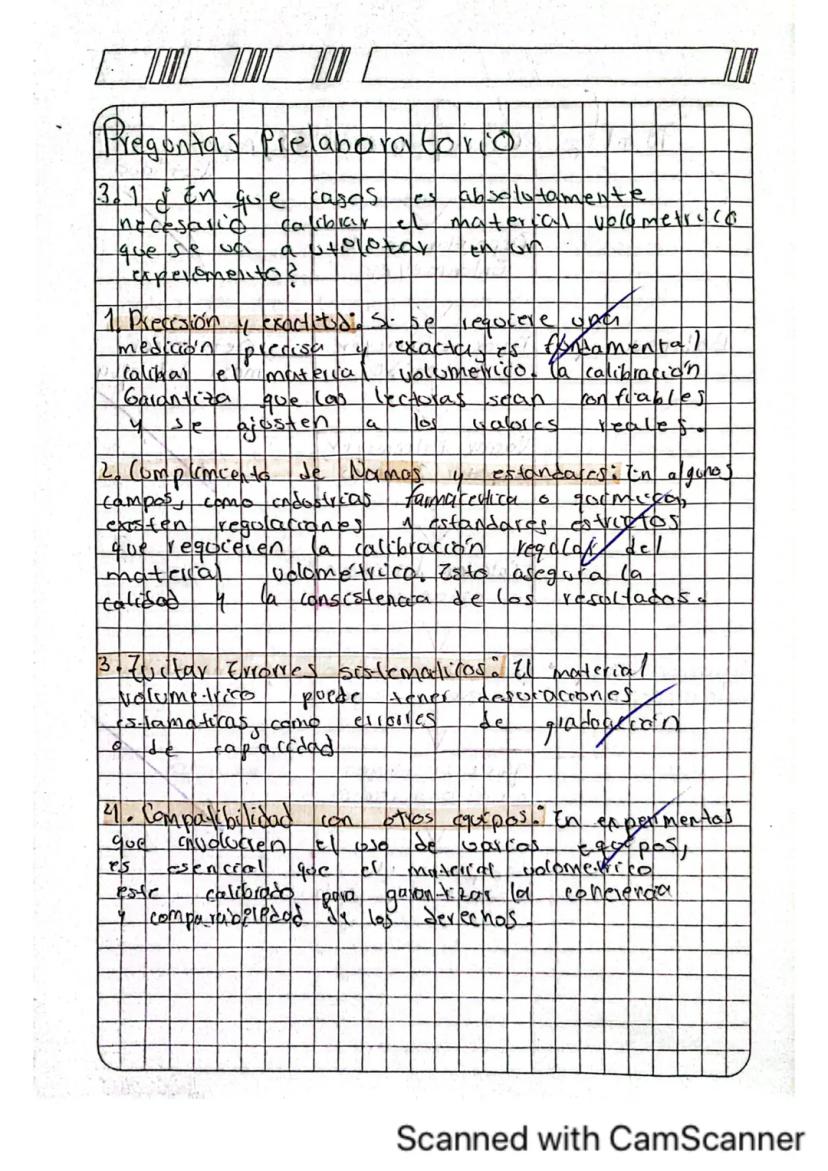 Preguntas Prelaboratorio
3.1 ¿ En que casos es absolutamente
necesario calibrar el material volometrico
que se va a utilizar en un
experimento?
1. Precisión y exactitud: Si se requiere una
medición precisa y exacta, es fundamental
calibrar el material volumetrico. la calibración
Garantiza que las lecturas sean confiables
y se ajusten a los valores reales.
2. Complimiento de Normas y estandares: En algunos
campos, como industrias farmaceutica o quimica,
existen regulaciones y estandares estrictos
que requieren la calibración regular del
material volumétrico. Esto asegura la
calidad y la consistencia de los resultados.
3. Evitar Errores sistematicos: El material
volumetrico puede tener desviaciones
como errores de graduación
o de capacidad
4. Compatibilidad con otros equipos: En experimentos
que involucren el uso de varios equipos,
es esencial que el material volumetrico
este calibrado para garantizar la coherencia
y comparabilidad de los derechos.
Scanned with CamScanner